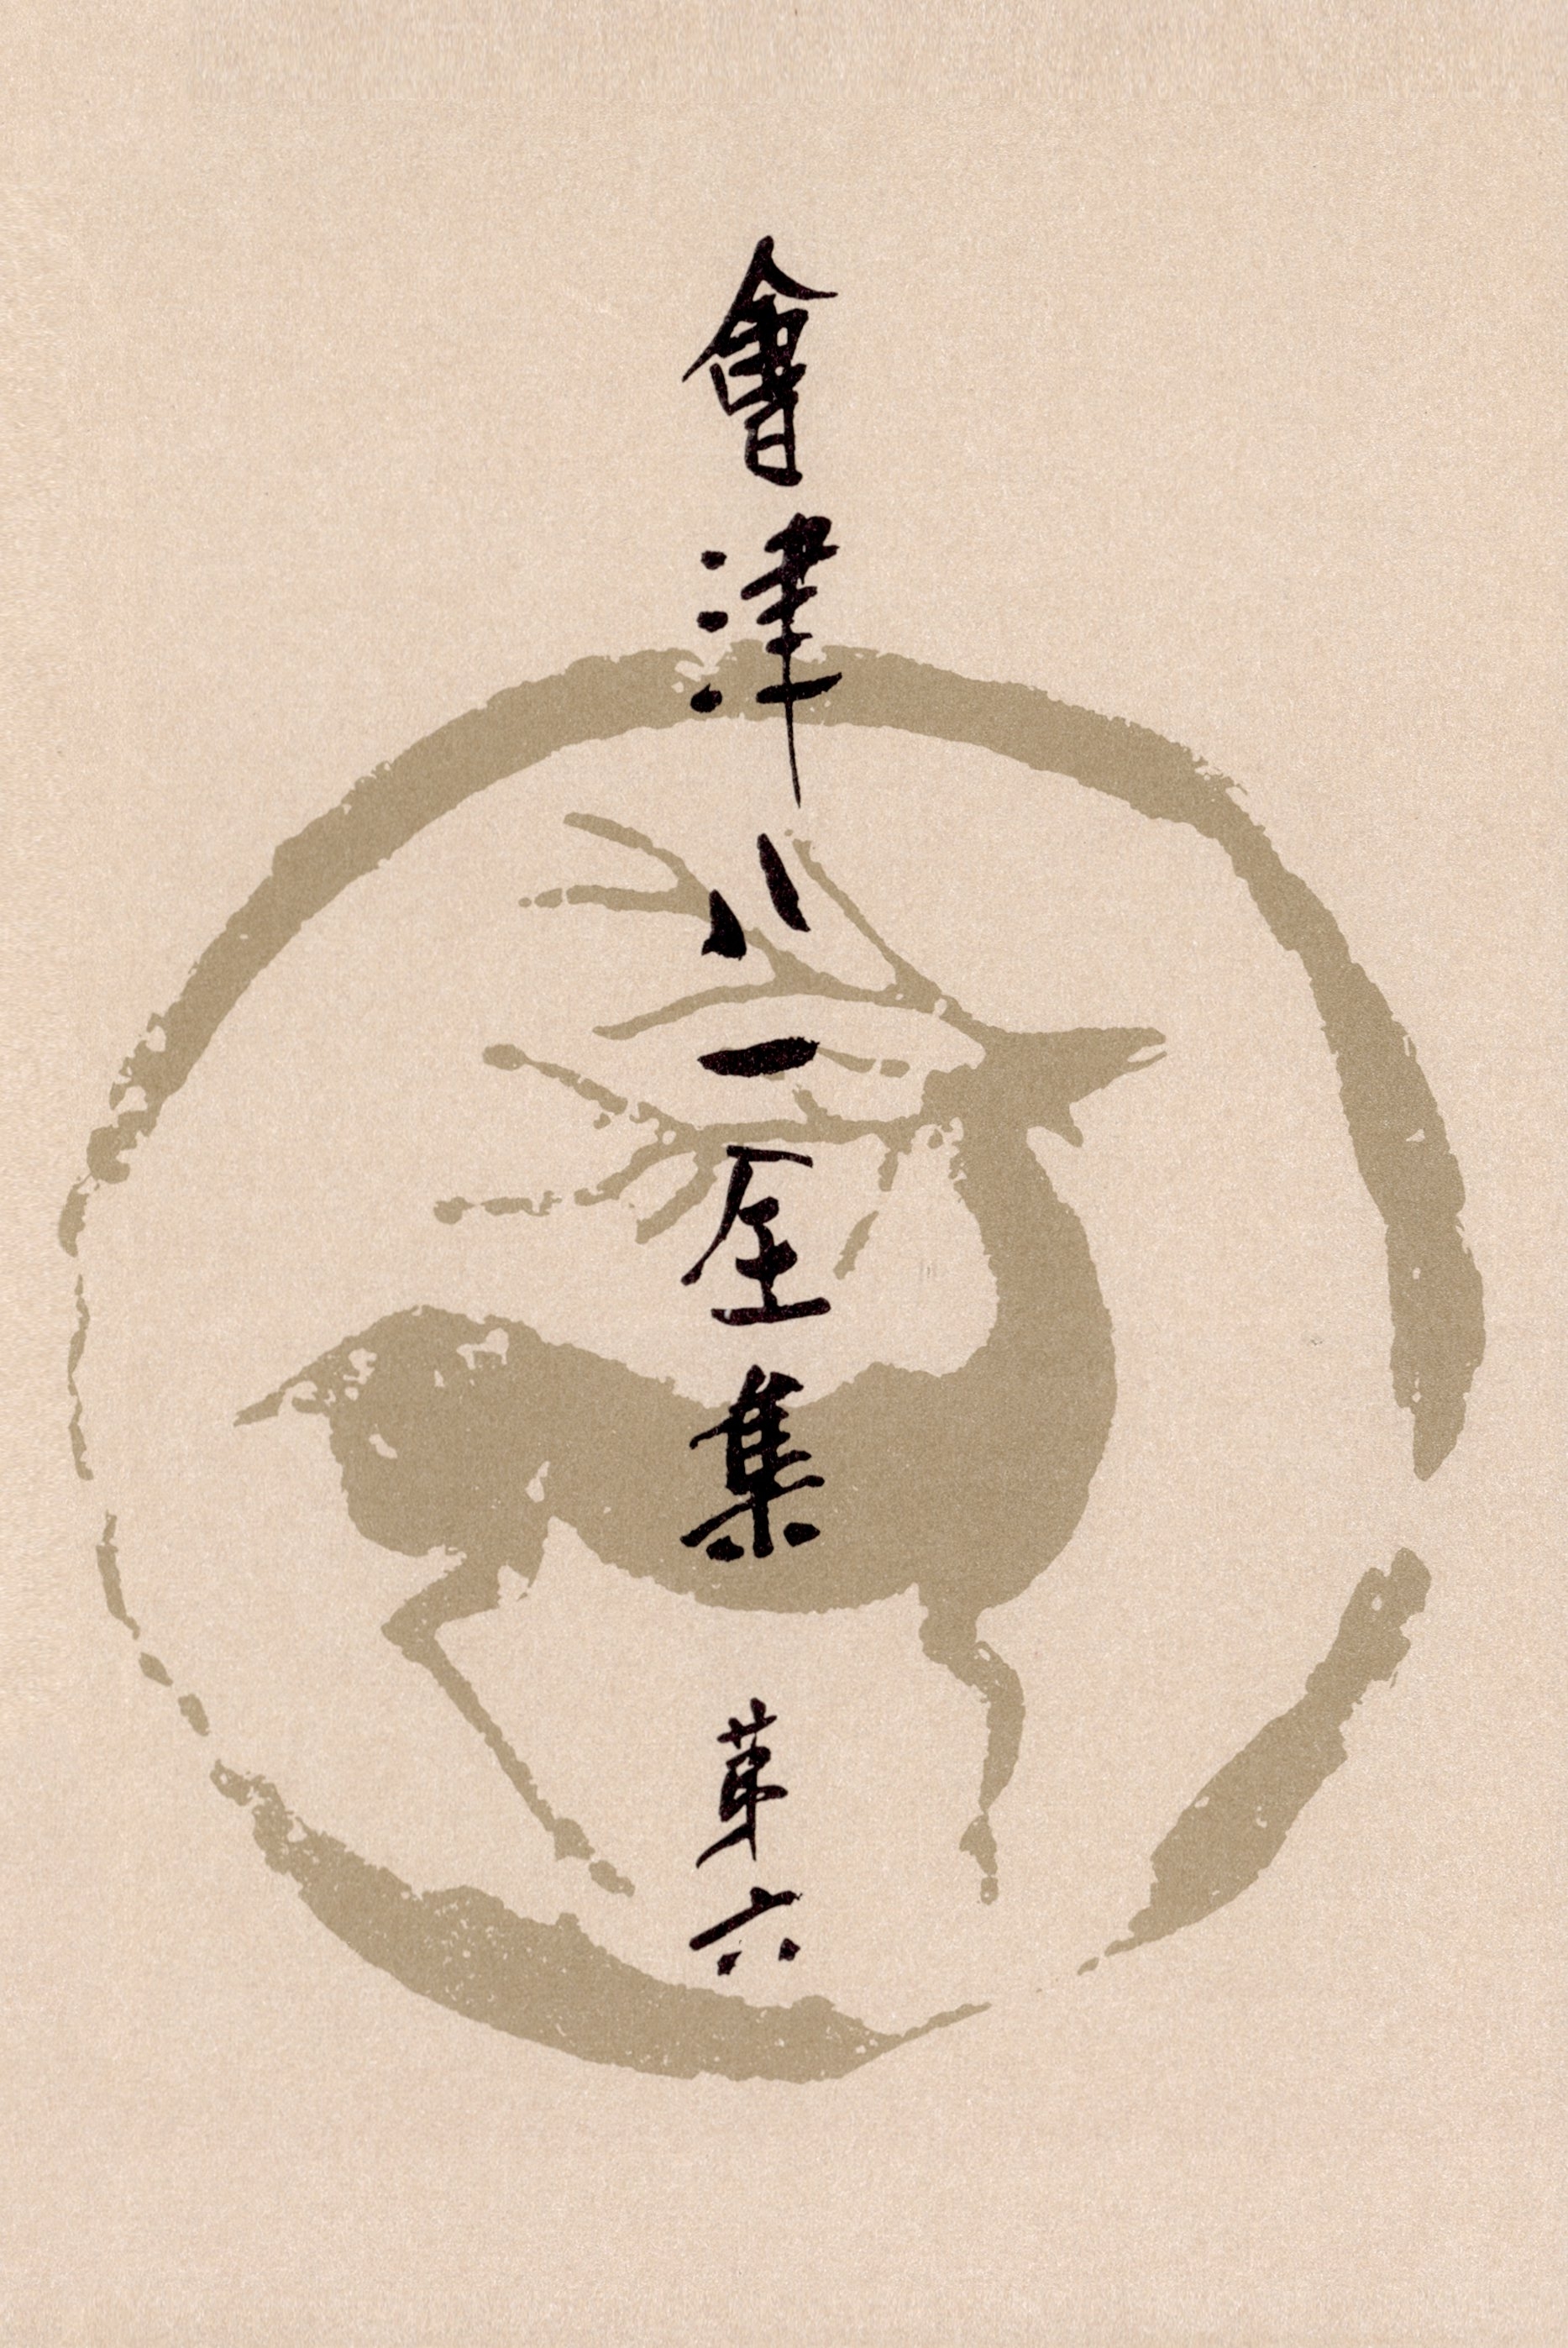 會津八一全集 第六